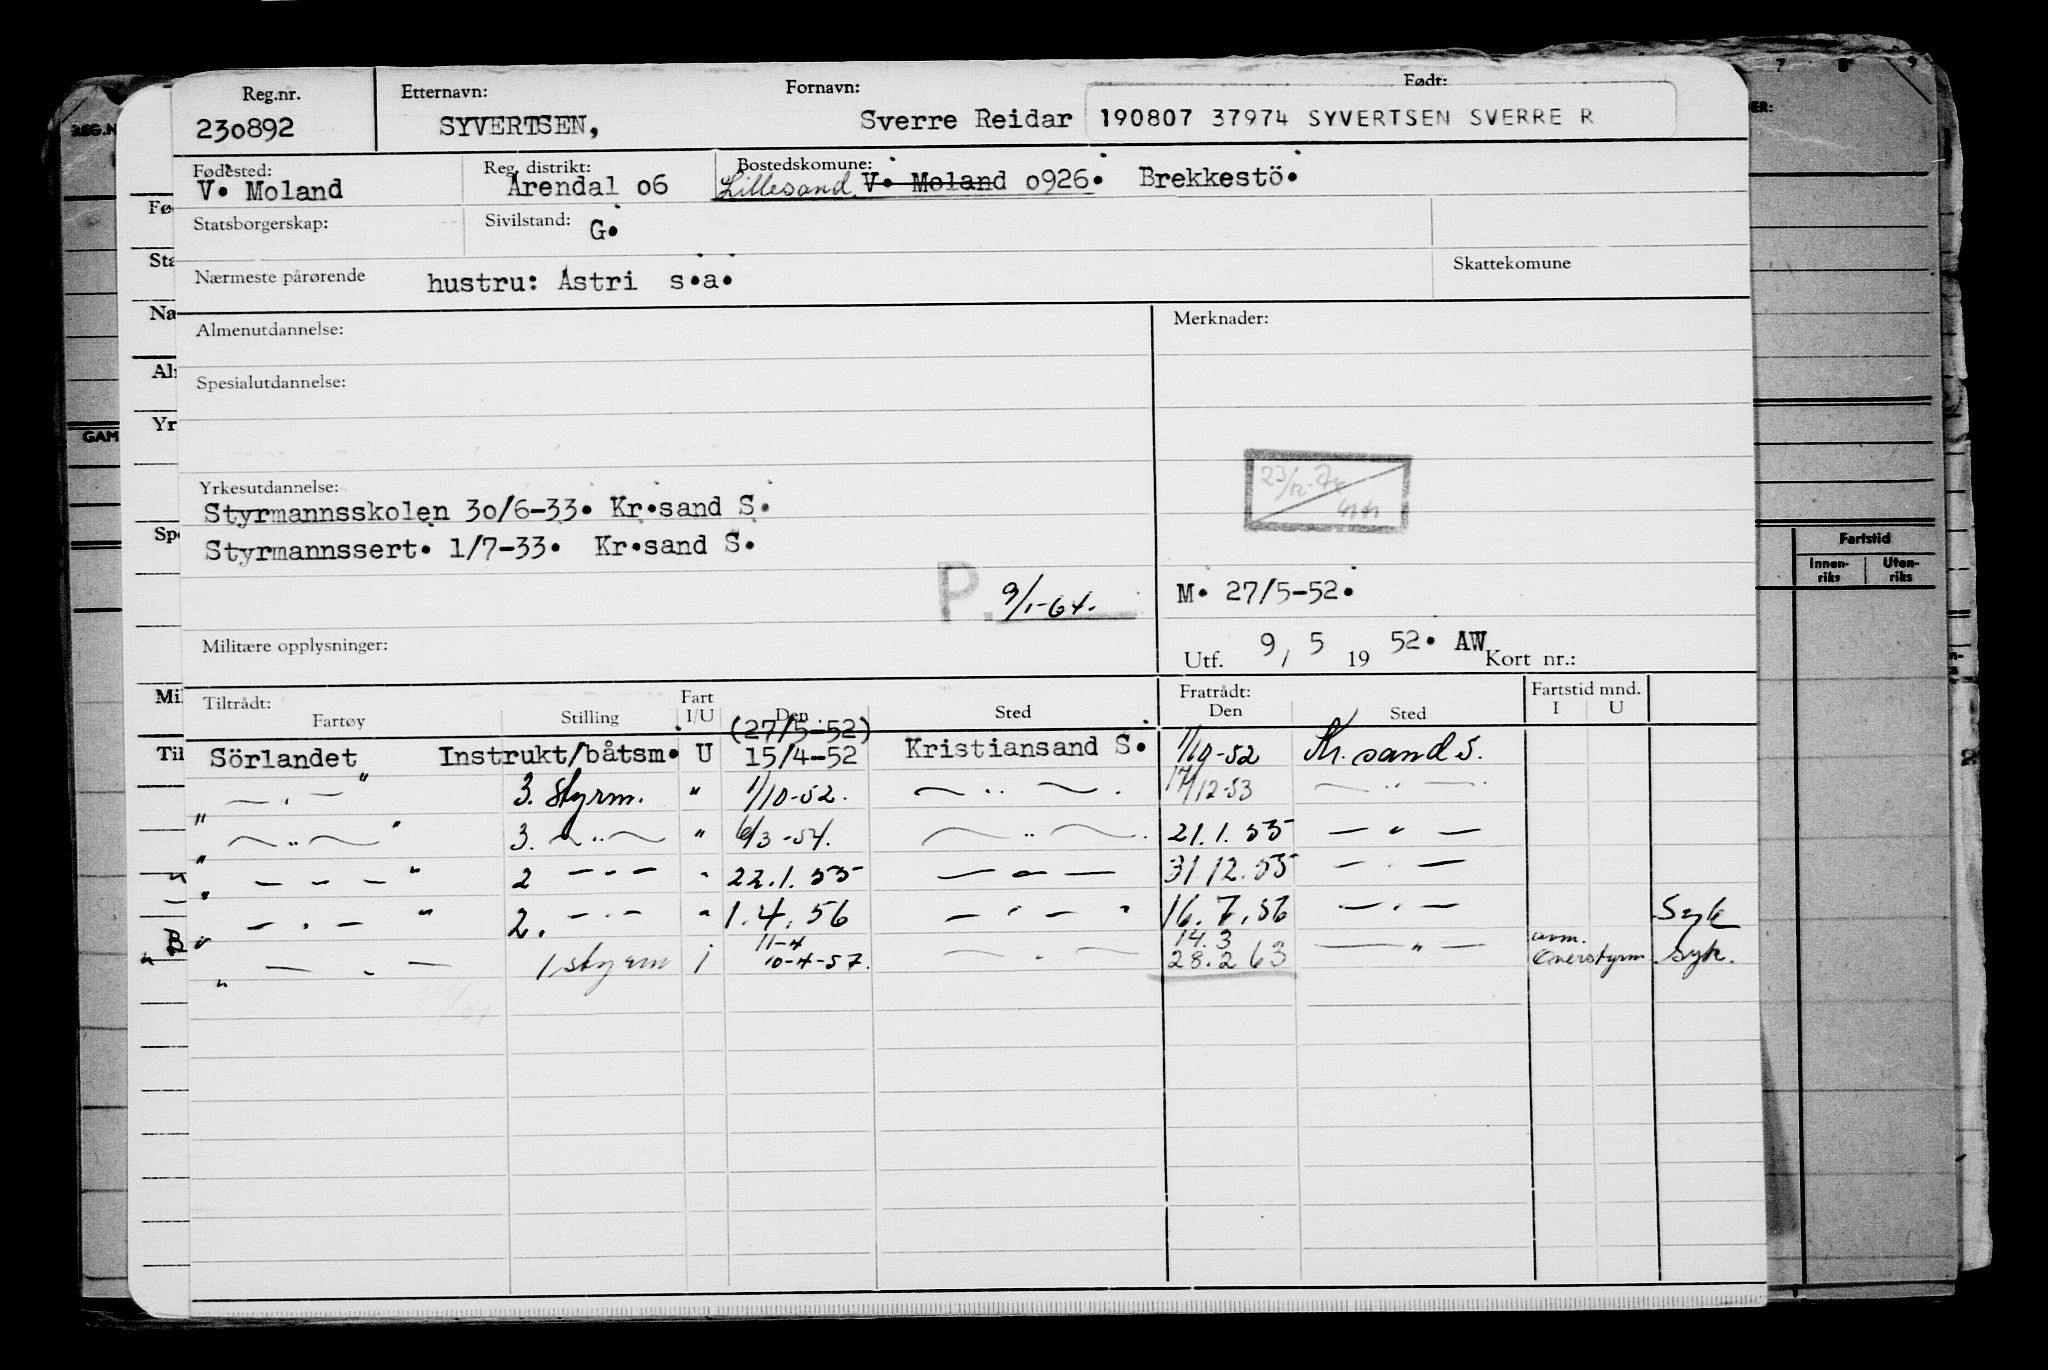 Reg.nr. Etternavn: Fornavn: Født:
230892 SYVERTSEN, Sverre Reidar 190807 37974 SYVERTSEN SVERRE R
Fødested: Reg. distrikt: Bostedskomune:
V. Moland Arendal 06 Lillesand V. Moland 0926. Brekkestö.
Statsborgerskap: Sivilstand: G.
Nærmeste pårørende hustru: Astri s.a. Skattekomune
Almenutdannelse: Merknader:
Spesialutdannelse:
Yrkesutdannelse:
Styrmannsskolen 30/6-33. Kr.sand S.
Styrmannssert. 1/7-33. Kr.sand S.
P. 9/1-64. M. 27/5-52.
Militære opplysninger: Utf. 9, 5 19 52. AW Kort nr.:
Tiltrådt: Fart Fratrådt: Fartstid mnd.
Fartøy Stilling I/U Den Sted Den Sted I U
(27/5-52)
Sörlandet Instrukt/båtsm. U 15/4-52 Kristiansand S. 1/10-52 Kr.sand S.
" — " — " 3. Styrm. " 1/10-52. — " — 17/12-53 — " —
" — " — " 3. — " — " 6/3-54. — " — 21.1.55 — " —
" — " — " 2 — " — " 22.1.55 — " — 31.12.55 — " —
" — " — " 2. — " — " 1.4.56 — " — 16.7.56 — " — Syk
11-4 14.3
" — " — 1 styrm i 10-4-57. — " — 28.2 63 — " — Overstyrm. syk.
REG.N
GAM
Fartstid
Innen-riks Uten-riks